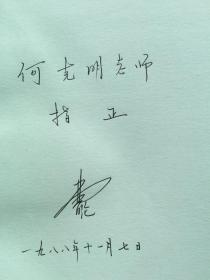 何克明老师
指正
一九八八年十一月七日